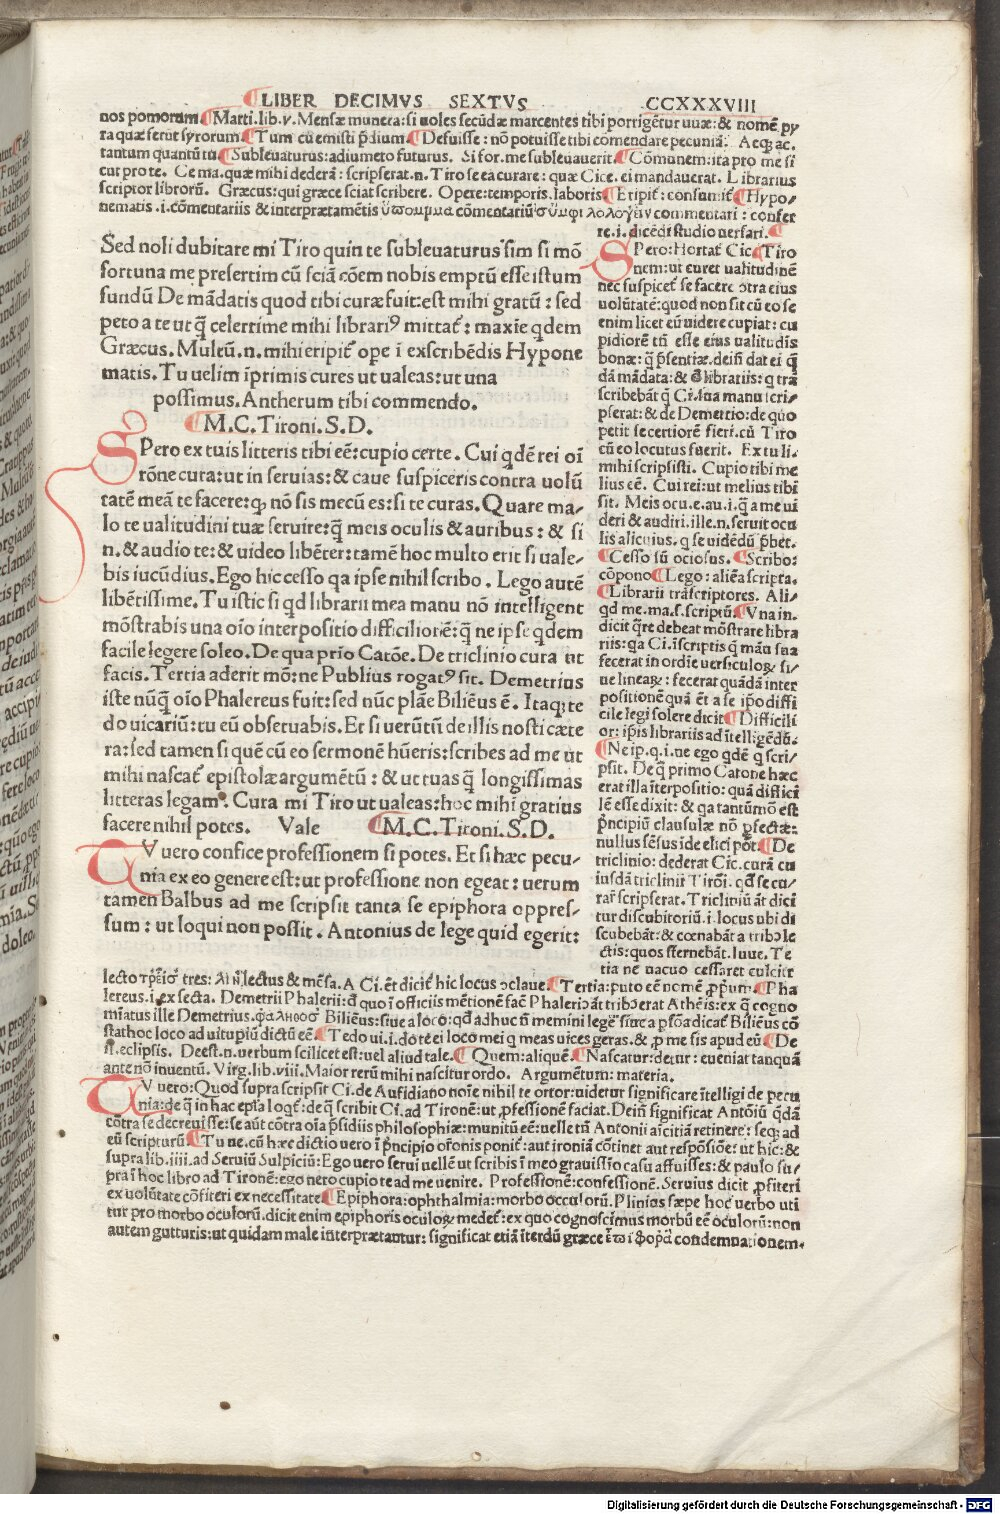 LIBER DECIMVS SEXTVS CCXXXVIII
nos pomorum. Marti.lib.v. Mensæ munera: si uoles secūdæ marcentes tibi porrigētur uuæ: & nomē py
ra quæ ferūt syrorum. Tum cū emisti p̄dium. Defuisse: nō potuisse tibi comendare pecuniā. Aeq; ac.
tantum quantū tu. Subleuaturus: adiumēto futurus. Si for.me subleuauerit. Cōmunem: ita pro me si
cut pro te. Ce ma. quæ mihi dederā: scripserat.n. Tiro se ea curare: quæ Cice. ei mandauerat. Librarius
scriptor librorū. Græcus: qui græce sciat scribere. Opere: temporis.laboris. Eripit̄: consumit̄. Hypo/
nematis.i.cōmentariis & interprætamētis ὑπομνημα cōmentariū συμφιλολογεῖν commentari: confer
re.i.dicēdi studio uersari.
Sed noli dubitare mi Tiro quin te subleuaturus sim si mō
fortuna me presertim cū sciā cōem nobis emptū esse istum
fundū De mādatis quod tibi curæ fuit: est mihi gratū: sed
peto a te ut q̄ celerrime mihi librariꝰ mittat̄: maxīe qdem
Græcus. Multū.n. mihi eripit̄ opē ī exscribēdis Hypone
matis. Tu uelim īprimis cures ut ualeas: ut una
possimus. Antherum tibi commendo.
M.C.Tironi.S.D.
SPero ex tuis litteris tibi eē: cupio certe. Cui qdē rei oī
rōne cura: ut inseruias: & caue suspiceris contra uolū
tatē meā te facere: q; nō sis mecū es: si te curas. Quare ma/
lo te ualitudini tuæ seruire: q̄ meis oculis & auribus: & si
n. & audio te: & uideo libēter: tamē hoc multo erit si uale/
bis iucūdius. Ego hic cesso qa ipse nihil scribo. Lego autē
libētissime. Tu istic si qd librarii mea manu nō intelligent
mōstrabis una oīo interpositio difficiliorē: q̄ ne ipse qdem
facile legere soleo. De qua prīo Catōe. De triclinio cura ut
facis. Tertia aderit mō: ne Publius rogatꝰ sit. Demetrius
iste nūq̄ oīo Phalereus fuit: sed nūc plāe Biliēus ē. Itaq; te
do uicariū: tu eū obseruabis. Et si uerūtū de illis nosti cæte
ra: sed tamen si quē cū eo sermonē hūeris: scribes ad me ut
mihi nascat̄ epistolæ argumētū: & ut tuas q̄ longissimas
litteras legam. Cura mi Tiro ut ualeas: hoc mihi gratius
facere nihil potes. Vale M.C.Tironi.S.D.
TV uero confice professionem si potes. Et si hæc pecu/
nia ex eo genere est: ut professione non egeat: uerum
tamen Balbus ad me scripsit tanta se epiphora oppres/
sum: ut loqui non possit. Antonius de lege quid egerit:
SPero: Hortat̄ Cic. Tiro
nem: ut curet ualitudinē
nec suspicet̄ se facere ↄtra eius
uolūtatē: quod non sit cū eo se
enim licet eū uidere cupiat: cu
pidiorē tn̄ esse eius ualitudīs
bonæ: q̄ p̄sentiæ. dein̄ dat ei q̄
dā mādata: & librariis: q trā
scribebāt q̄ Ci. sua manu scri/
pserat: & de Demetrio: de quo
petit se certiorē fieri. cū Tiro
cū eo locutus fuerit. Ex tu li.
mihi scripsisti. Cupio tibi me
lius eē. Cui rei: ut melius tibi
sit. Meis ocu.e.au.i.q̄ a me ui
deri & audiri. ille.n. seruit ocu
lis alicuius. q se uidēdū p̄bet.
Cesso sū ociosus. Scribo:
cōpono. Lego: aliēa scripta.
Librarii trāscriptores. Ali/
qd me.ma.s.scriptū. Vna in.
dicit q̄re debeat mōstrare libra
riis: qa Ci. īscriptis q̄ māu sua
fecerat in ordīe uersiculoꝝ si/
ue lineaꝝ: fecerat quādā inter
positionē quā ēt a se ip̄o diffi
cile legi solere dicit. Difficili
or: ip̄is librariis ad ītelligēdū.
Ne ip.q.i.ne ego qdē q scri/
psit. De q̄ primo Catone hæc
erat illa īterpositio: quā difficī
lē esse dixit: & qa tantūmō est
p̄ncipiū clausulæ nō pfectæ:
nullus sēsus ide elici pōt. De
triclinio: dederat Cic. curā cu
iusdā triclinii Tirōi. qd̄ se cu/
rare scripserat. Tricliniū āt dici
tur discubitoriū.i.locus ubi di
scubebāt: & cœnabāt a tribↄ le
ctis: quos sternebāt. Iuue. Te
tia ne uacuo cessaret culcitr
lecto τρεῖσ tres: λίνη lectus & mēsa. A Ci. ēt dicit̄ hic locus ↄclaue. Tertia: puto eē nomē ꝓprium. Pha
lereus.i.ex secta. Demetrii Phalerii: d̄ quo ī officiis mētionē fac̄ Phalerↄ āt tribↄ erat Athēis: ex q̄ cogno
mīatus ille Demetrius. φαληρεοσ Biliēus: siue a loco: qd̄ adhuc nō memini legē siue a psōa dicat̄ Biliēus cō
stat hoc loco ad uitupiū dictū eē. Te do ui.i.do te ei loco mei q meas uices geras. & ꝓ me sis apud eū. De
ſt.eclipsis. Deest.n. uerbum scilicet est: uel aliud tale. Quem: aliquē. Nascatur: detur: eueniat tanquā
ante nō inuentū. Virg.lib.viii. Maior rerū mihi nascitur ordo. Argumētum: materia.
TV uero: Quod supra scripsit Ci. de Aufidiano noīe nihil te ortor: uidetur significare ītelligi de pecu
nia: de q̄ in hac epīa loqt̄: de q̄ scribit Ci. ad Tironē: ut ꝓfessionē faciat. Dein̄ significat Antōiū qdā
cōtra se decreuisse: se aūt cōtra oīa p̄sidiis philosophiæ: munitū eē: uelle tn̄ Antonii aīcitiā retinere: seq; ad
eū scripturū. Tu ue. cū hæc dictio uero ī p̄ncipio oronis ponit̄: aut ironiā cōtinet aut respōsiōē: ut hic: &
supra lib.iiii.ad Seruiū Sulpiciū: Ego uero serui uellē ut scribis ī meo grauissīo casu affuisses: & paulo su/
pra ī hoc libro ad Tironē: ego uero cupio te ad me uenire. Professionē: confessionē. Seruius dicit ꝓfiteri
ex uolūtate cōfiteri ex necessitate. Epiphora: ophthalmia: morbo occulorū. Plinius sæpe hoc uerbo uti
tur pro morbo oculorū. dicit enim epiphoris oculoꝝ medet̄: ex quo cognoscimus morbū eē oculorū: non
autem gutturis: ut quidam male interprætantur: significat etiā iterdū græce ἐπιφορά condemnationem.
Digitalisierung gefördert durch die Deutsche Forschungsgemeinschaft - DFG